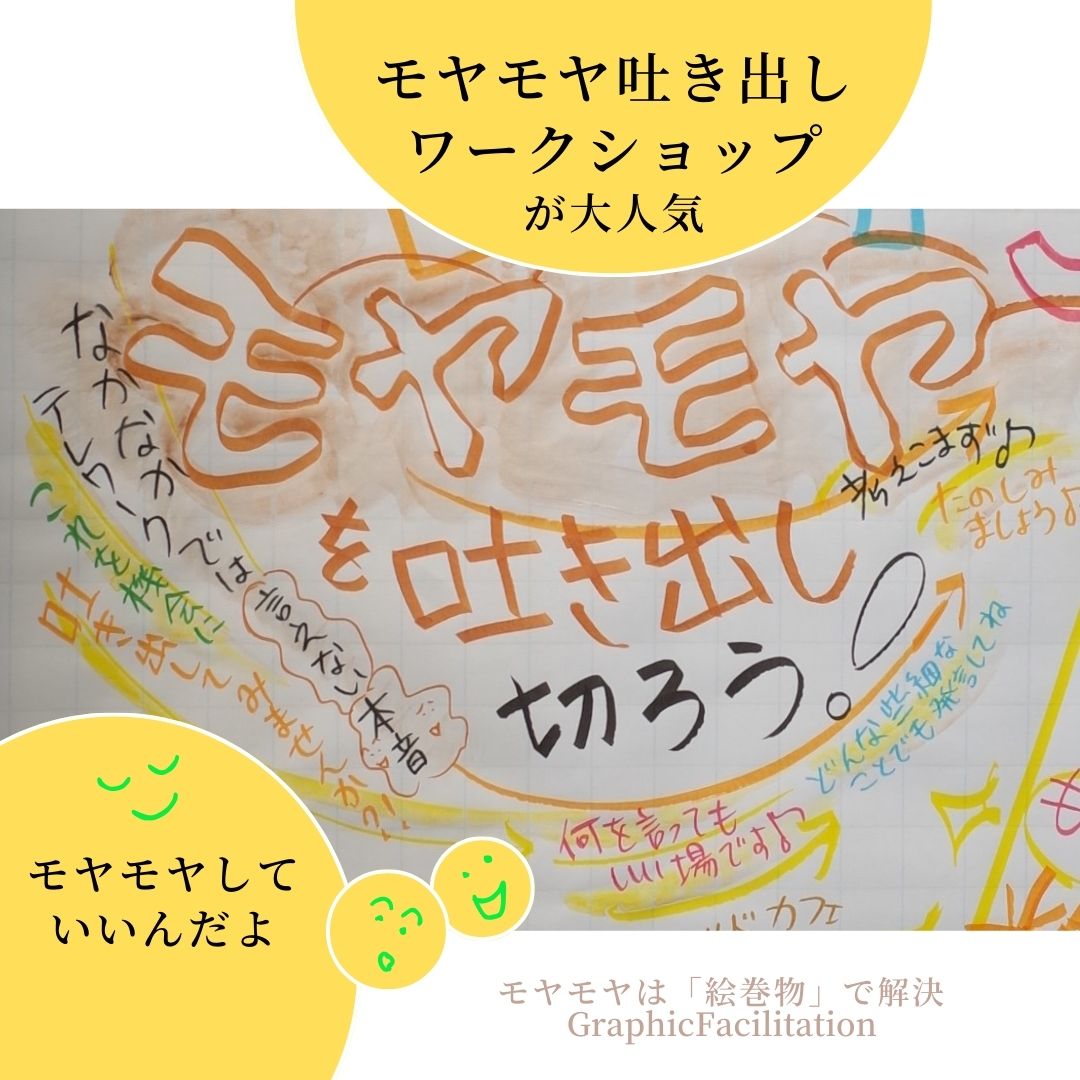 モヤモヤ吐き出し
ワークショップ
が大人気
モヤモヤ
を吐き出し
切ろう。
なかなか
テレワークでは言えない本音
これを機会に
吐き出してみませんかっ!!
考えこまず♪
たのしみ
ましょう♪
どんな些細な
ことでも発言してね
何を言っても
いい場です♪
カフェ
モヤモヤして
いいんだよ
モヤモヤは「絵巻物」で解決
GraphicFacilitation